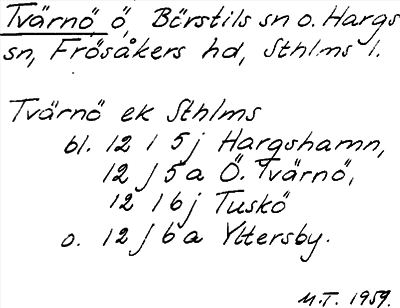 Tvärnö, ö, Börstils sn o. Hargs
sn, Frösåkers hd, Sthlms l.
Tvärnö ek Sthlms
bl. 12 I 5 j Hargshamn,
12 J 5 a Ö. Tvärnö,
12 I 6 j Tuskö
o. 12 J 6 a Yttersby.
M.T. 1959.